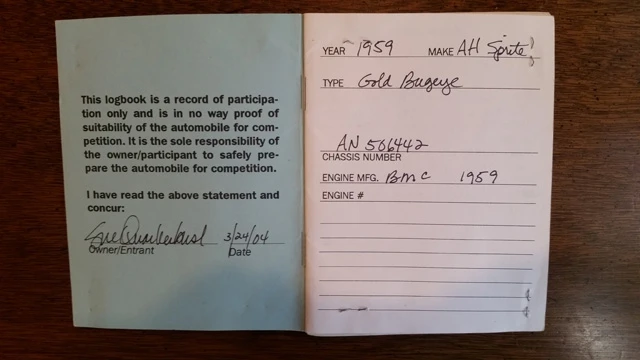 This logbook is a record of participa-
tion only and is in no way proof of
suitability of the automobile for com-
petition. It is the sole responsibility of
the owner/participant to safely pre-
pare the automobile for competition.
I have read the above statement and
concur:
3/24/04
Owner/Entrant Date
YEAR 1959 MAKE AH Sprite
TYPE Gold Bugeye
AN 506442
CHASSIS NUMBER
ENGINE MFG. BMC 1959
ENGINE #